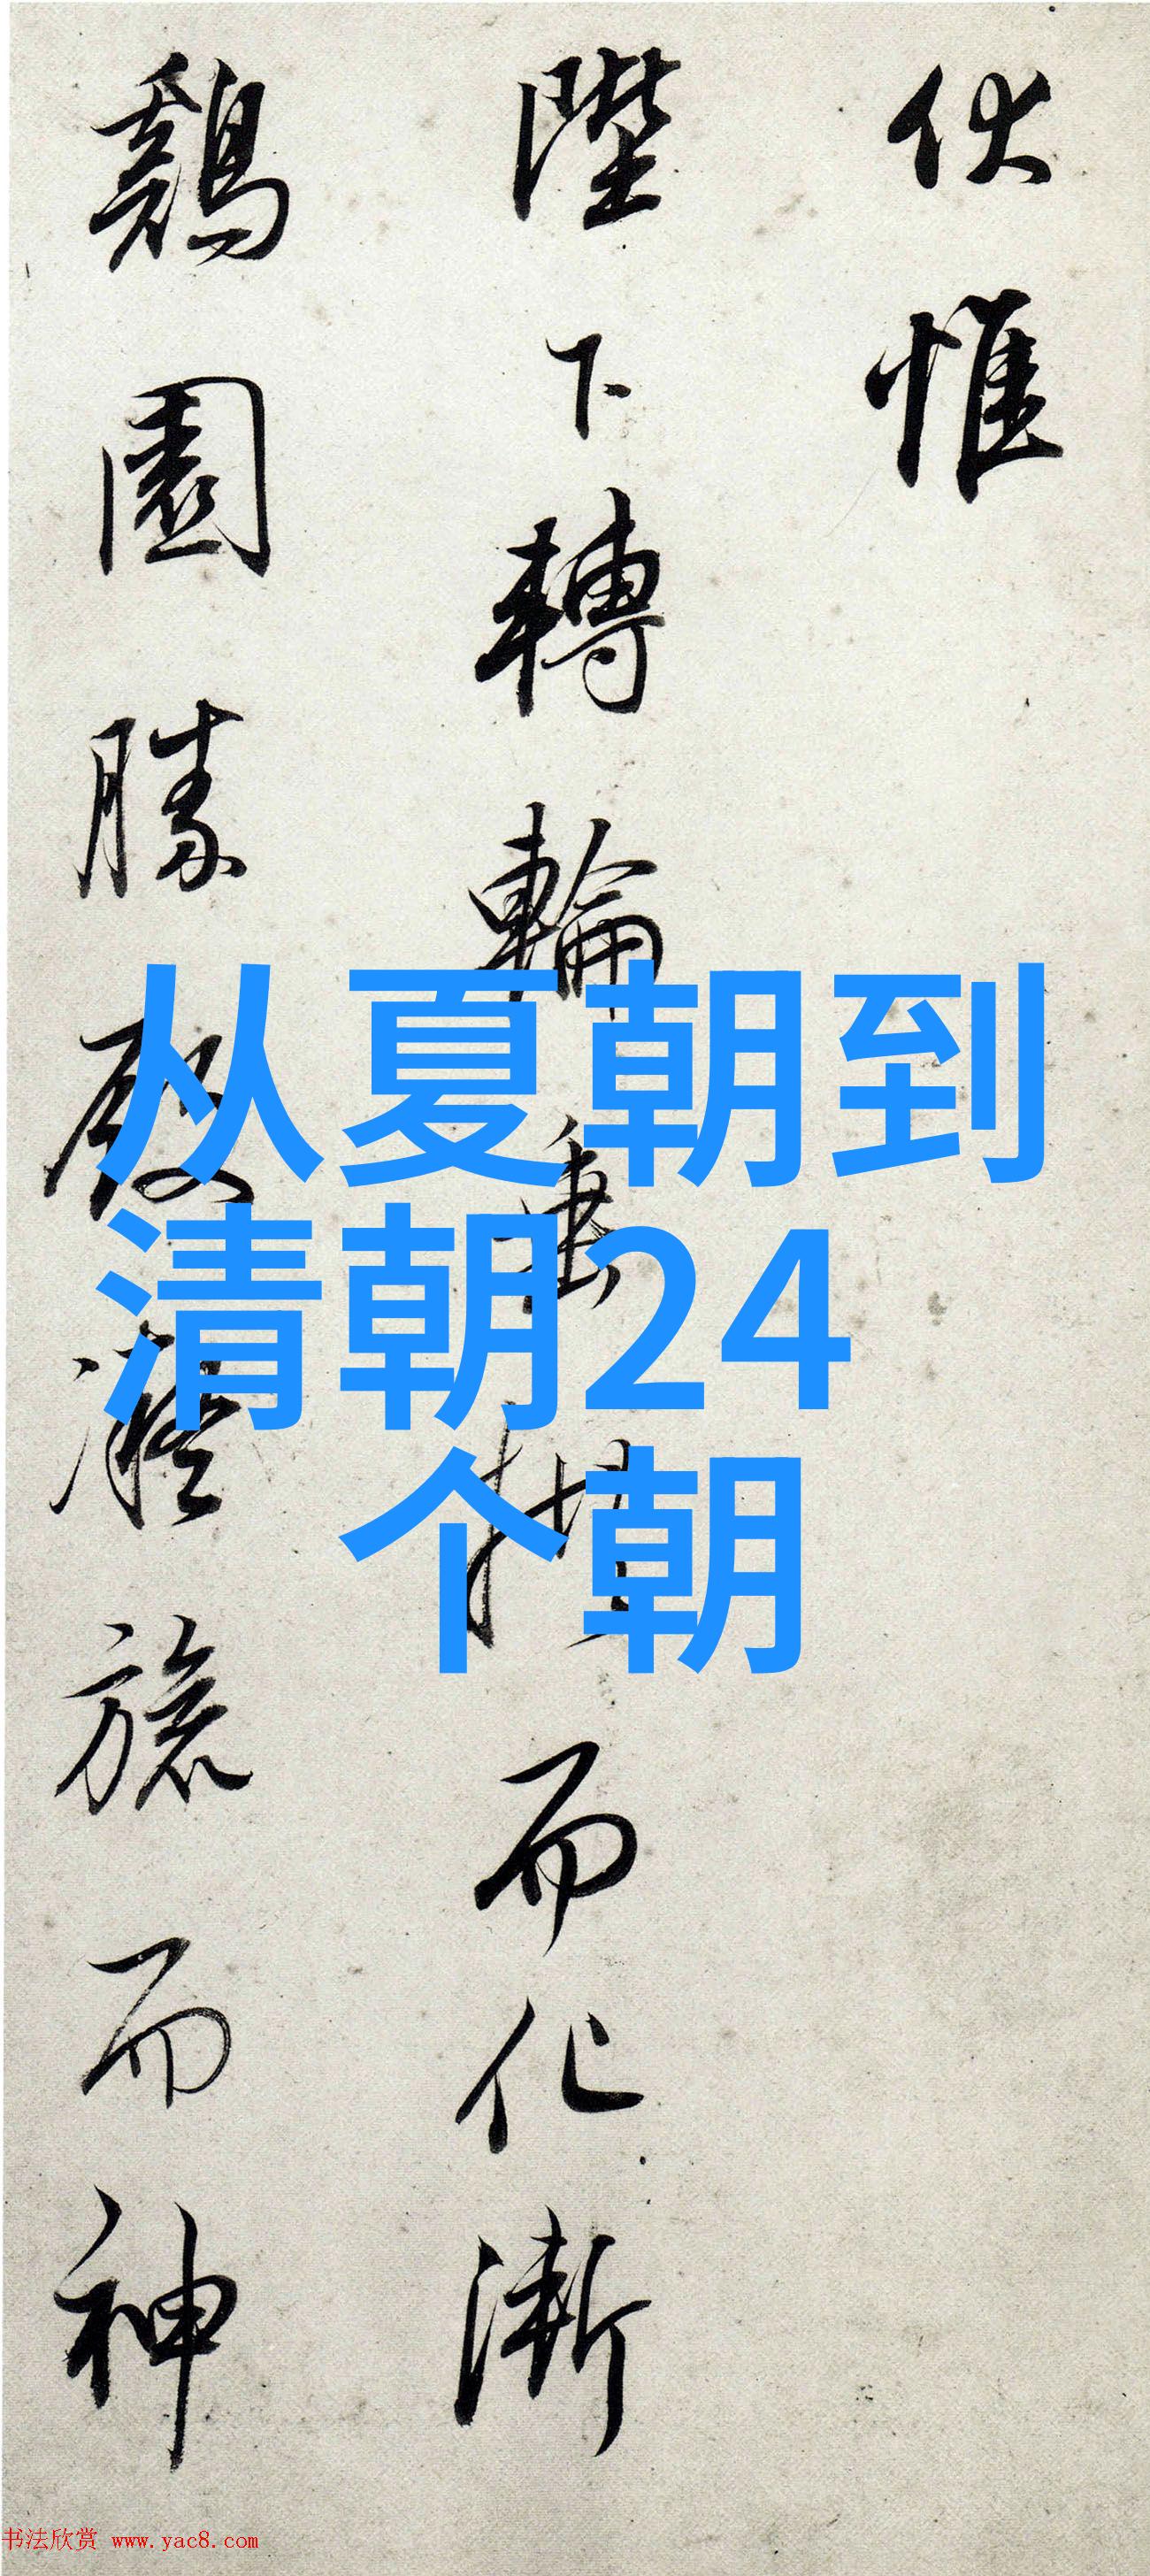 伏惟
陛下轉輪垂拱而化漸
鷄園勝殿凝旒而神
从夏朝到
清朝24
个朝
书法欣赏 www.yac8.com